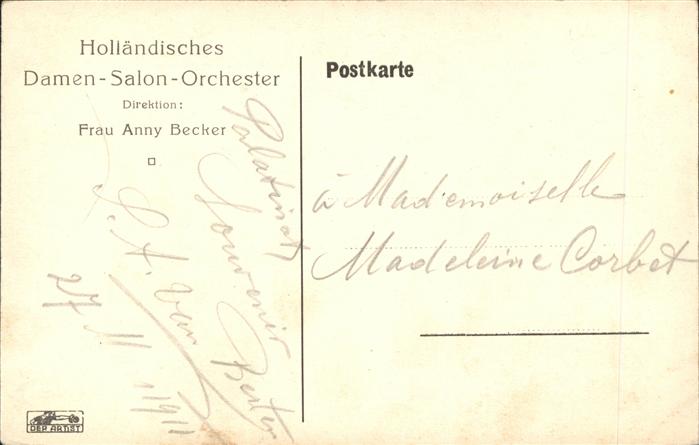 Holländisches
Damen-Salon-Orchester
Direktion:
Frau Anny Becker
Postkarte
à Mademoiselle
Madeleine Corbet
Souvenir
27 11 1911
DER ARTIST